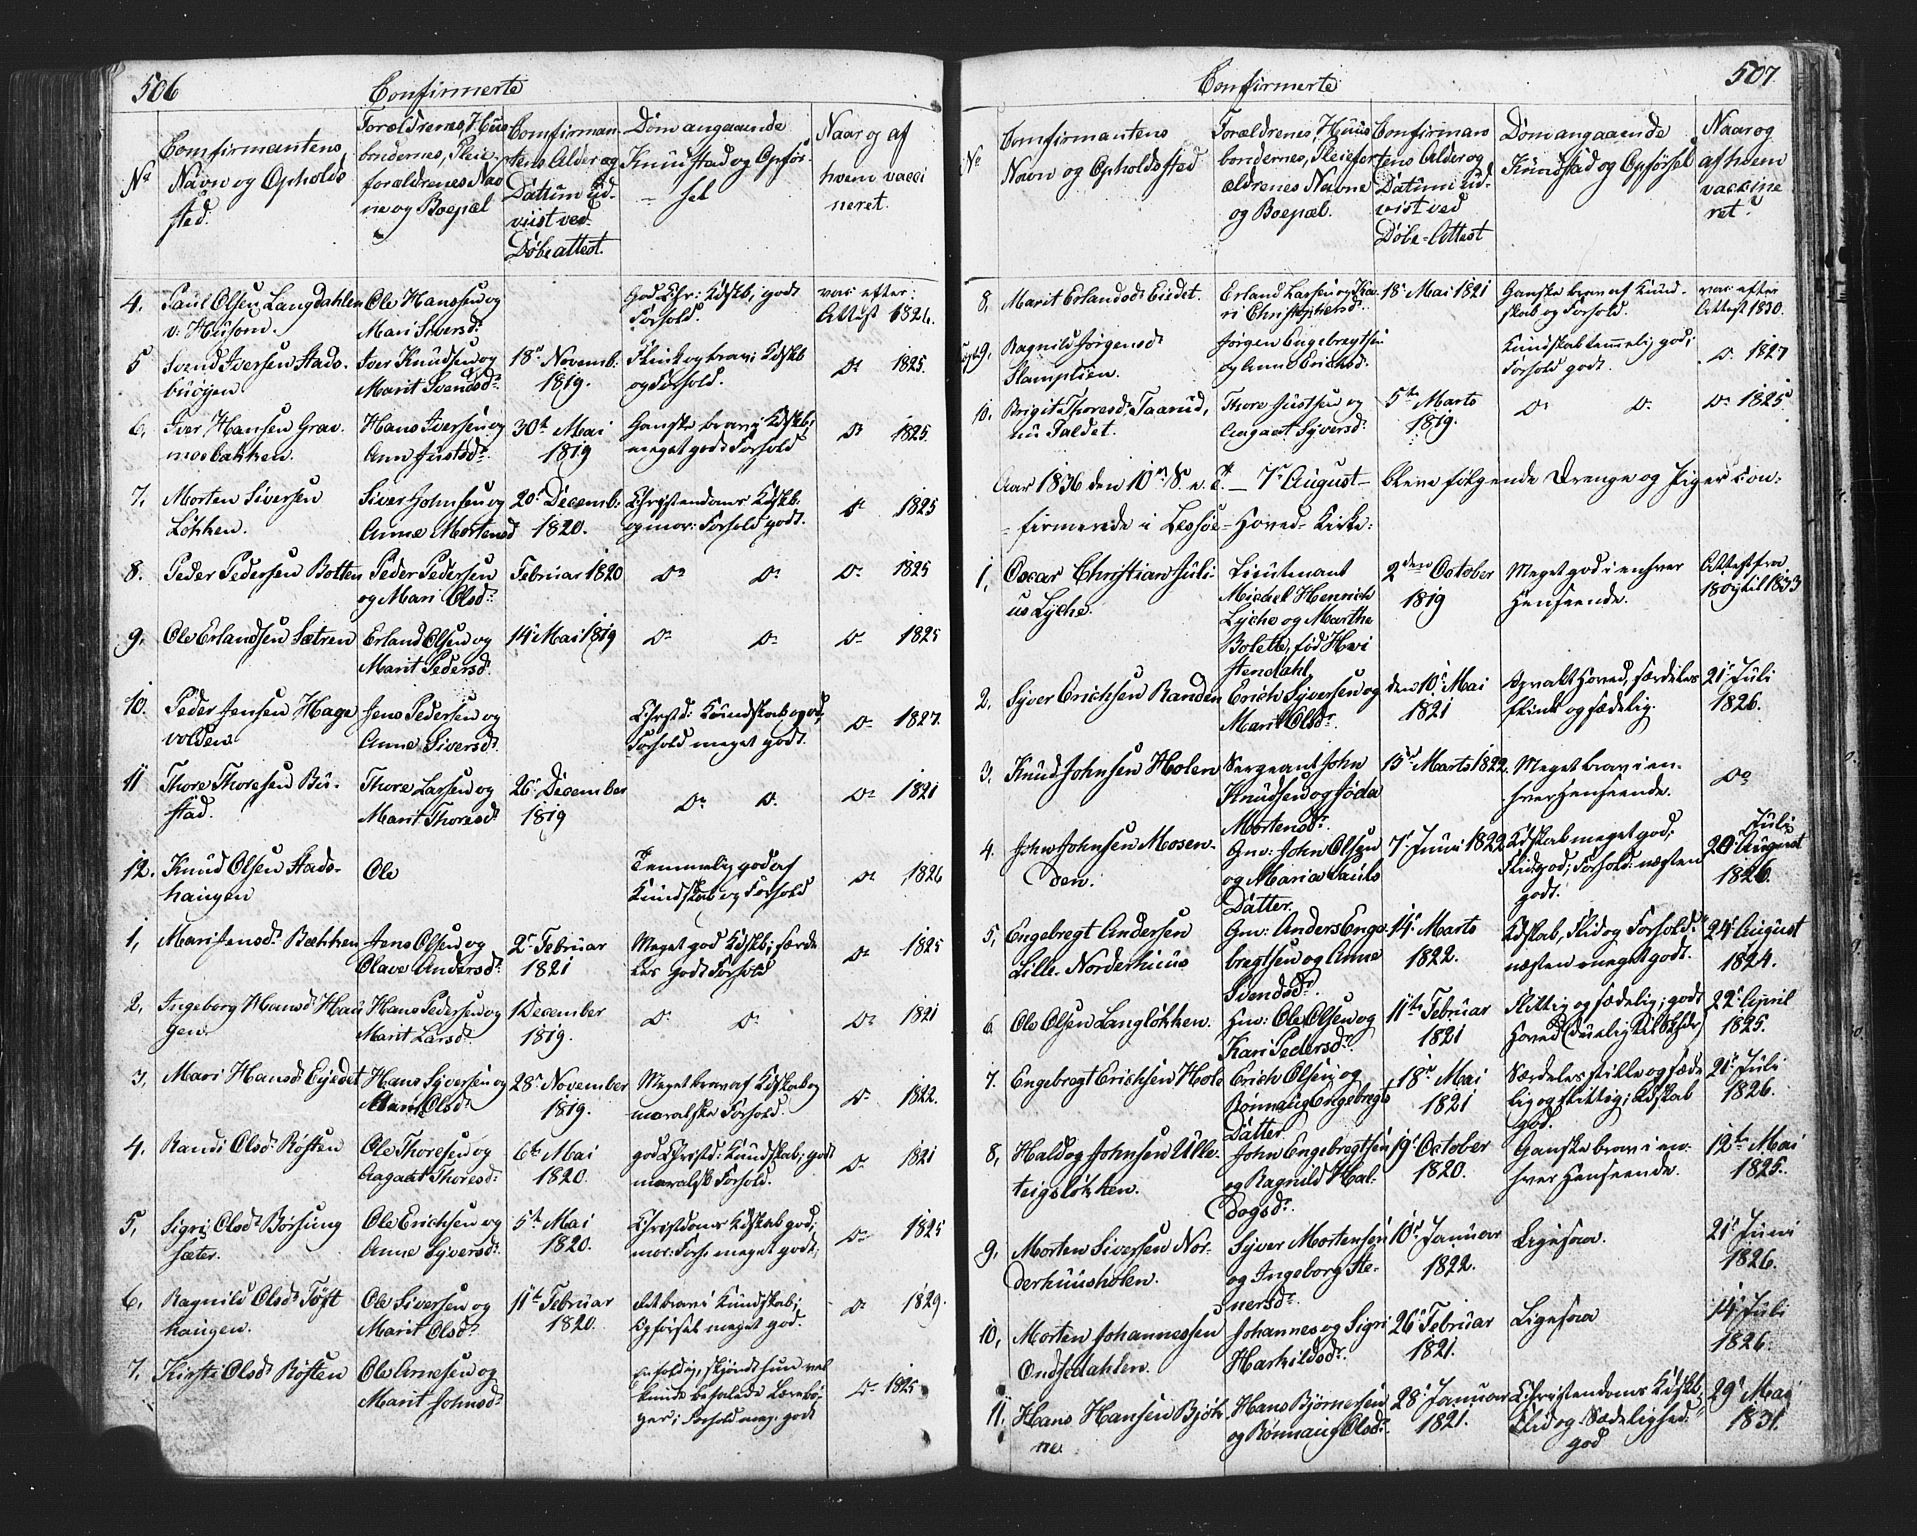 506
Confirmerte
No
Confirmantens
Navn og Opholds
sted.
Forældrenes, Huus
bondernes, Pleie-
forældrenes Nav
ne og Boepæl
Comfirman-
tens Alder og
Dattum ud-
viist ved
Døbe attest.
Dom angaaende
Kundskab og Opfør-
sel
Naar og af
hvem vacci
neret.
4. Paul Olsen Langdahlen
v. Husom.
Ole Hanssen og
Mari Siversd.
God Chr: Kdskb, godt
Forhold.
vac: efter:
Attest 1826.
5 Svend Iversen Stads-
buøyen.
Iver Knudsen og
Marit Svendsd.
18de Novemb.
1819.
Flink og brav i Kdskb
og Forhold.
Do 1825.
6. Iver Hansen Grav-
mosbakken.
Hans Iversen og
Ann Justsd.
30te Mai
1819
Ganske brav i Kdskb,
meget godt Forhold
Do 1825.
7. Morten Siversen
Løkken.
Siver Johnsen og
Anne Mortensd
20de Decemb.
1820.
Christendoms Kdskb
og mor: Forhold godt.
Do 1825
8. Peder Pedersen Botten
Peder Pedersen
og Mari Olsd.
Februar 1820
Do Do
Do 1825
9. Ole Erlandsen Sætren
Erland Olsen og
Marit Pedersd.
14de Mai 1819
Do Do
Do 1825
10. Peder Jensen Hage
volden.
Jens Pedersen og
Anne Siversd.
Christd: Kundskab og
Forhold meget godt.
Do 1827.
11 Thore Thoresen Bu-
stad.
Thore Larsen og
Marit Thoresd.
26de December
1819
Do Do
Do 1821
12. Knud Olsen Stads-
haugen
Ole
Temmelig god af
Kundskab og Forhold
Do 1826
1, Mari Jensd. Bækken
Jens Olsen og
Olave Andersd.
2de Februar
1821
Meget god Kdskb; særde
les godt Forhold
Do 1825
2, Ingeborg Hansd. Hau
gen.
Hans Pedersen og
Marit Larsd.
1 December
1819.
Do Do
Do 1821
3, Mari Hansd. Eijedet
Hans Syversen og
Olsd.
28de November
1819.
Meget brav af Kdskab og
moralske Forhold.
Do 1822.
4. Randi Olsd. Røften
Ole Thoresen og
Aagaat Thoresd.
6te Mai
1820.
god Christd: Kundskab; godt
moralsk Forhold.
Do 1821
5, Sigri Olsd. Børsung
sæter.
Ole Erichsen og
Anne Syversd.
5te Mai
1820.
Christdoms Kdskab god;
mor: Forh. meget godt;
Do 1825
6. Ragnild Olsd. Tøft
haugen.
Ole Siversen og
Marit Olsd.
11te Februar
1820.
Ret brav i Kundskab;
Opførsel meget god.
Do 1829.
7. Kirsti Olsd. Røften
Ole Arnesen og
Marit Johnsd.
Enfoldig, skjøndt hun vel
kunde befalede Lærebø-
ger; Forhold meg. godt
Do 1825
507
Confirmerte
No
Confirmantens
Navn og Opholdssted
Forældrenes, Huus
bondernes, Pleiefor
ældrenes Navne
og Boepæl.
Confirman
tens Alder og
Datum ud-
vist ved
Døbe-Attest
Dom angaaende
Kundskab og Opførsel
Naar og
af hvem
vaccine
ret.
8. Marit Erlandsd. Eiedet.
Erland Larsen og Ka-
ri Christophersd.
18de Mai 1821
Ganske brav af Kund-
skab og Forhold.
vac: efter
Attest 1830.
9. Ragnild Jørgensd.
Slamplien.
Jørgen Engebregtsen
og Anne Erichsd.
Kundskab temmelig god;
Forhold godt.
Do 1827
10. Brigit Thoresd. Taarud,
nu Faldet.
Thore Justsen og
Aagaat Syversd.
5te Marts
1819.
Do Do
Do 1825
Aar 1836 den 10de S. e. T. – 7de August – bleve følgende Drenge og Piger con-
firmerede i Lessøe-Hoved-Kirke:
1, Oscar Christian Juli-
us Lyche.
Lieutenant
Michel Henrich
Lyche og Marthe
Bolette, fød
Stendahl
2den October
1819
Meget god i enhver
Henseende.
Attest fra
til 1833
2. Syver Erichsen Randen
Erich Syversen og
Marit Olsd.
den 10de Mai
1821
Opvakt Hoved, særdeles
flink og sædelig.
21de Juli
1826.
3. Knud Johnsen Holen
Sergeant John
Knudsen og
Mortensd.
15de Marts 1822.
Meget brav i en-
hver Henseende.
Do
4. John Johnsen Mosen-
den.
Gm: John Olsen
og Maria Pauls
Datter.
7de Juni 1822
Kdskab meget god;
Flid god; Forhold: næsten
godt.
Juli
20de August
1826.
5, Engebregt Andersen
Lille-Norderhuus
Gm: Anders Enge
bregtsen og Anne
Svendsd.
14de Marts
1822.
Kdskab, Flid og Forhold:
næsten meget godt.
24de August
1824.
6. Ole Olsen Langløkken.
Hm: Ole Olsen og
Kari Pedersd.
11te Februar
1821
Flittig og sædelig; godt
Hoved
22de April
1825.
7. Engebregt Erichsen Hole
Erich Olsen og
Rønnaug Engebregts
Datter.
18de Mai
1821
Særdeles stille og sæde
lig og flittig; Kdskab
god.
21de Juli
1826.
8, Haldog Johnsen Ulle-
teigsløkken.
John Engebregtsen
og Ragnild Hal-
dogsd.
19de October
1820.
Ganske brav i en-
hver Henseende.
12te Mai
1825.
9. Morten Siversen Nor-
derhuusholen.
Syver Mortensen
og Ingeborg Ste-
nersd.
10de Januar
1822.
Ligesaa.
21de Juni
1826.
10, Morten Johannessen
Ondsdahlen.
Johannes og Sigri
Harkildsd.
26de Februar
1821.
Ligesaa
14de Juli
1826.
11. Hans Hansen Bjøk-
ne
Hans Bjørnersen
og Rønnaug Olsd.
28de Januar
1821.
Christendoms Kdskb,
Flid og Sædelighed
god
29de Mai
1831.